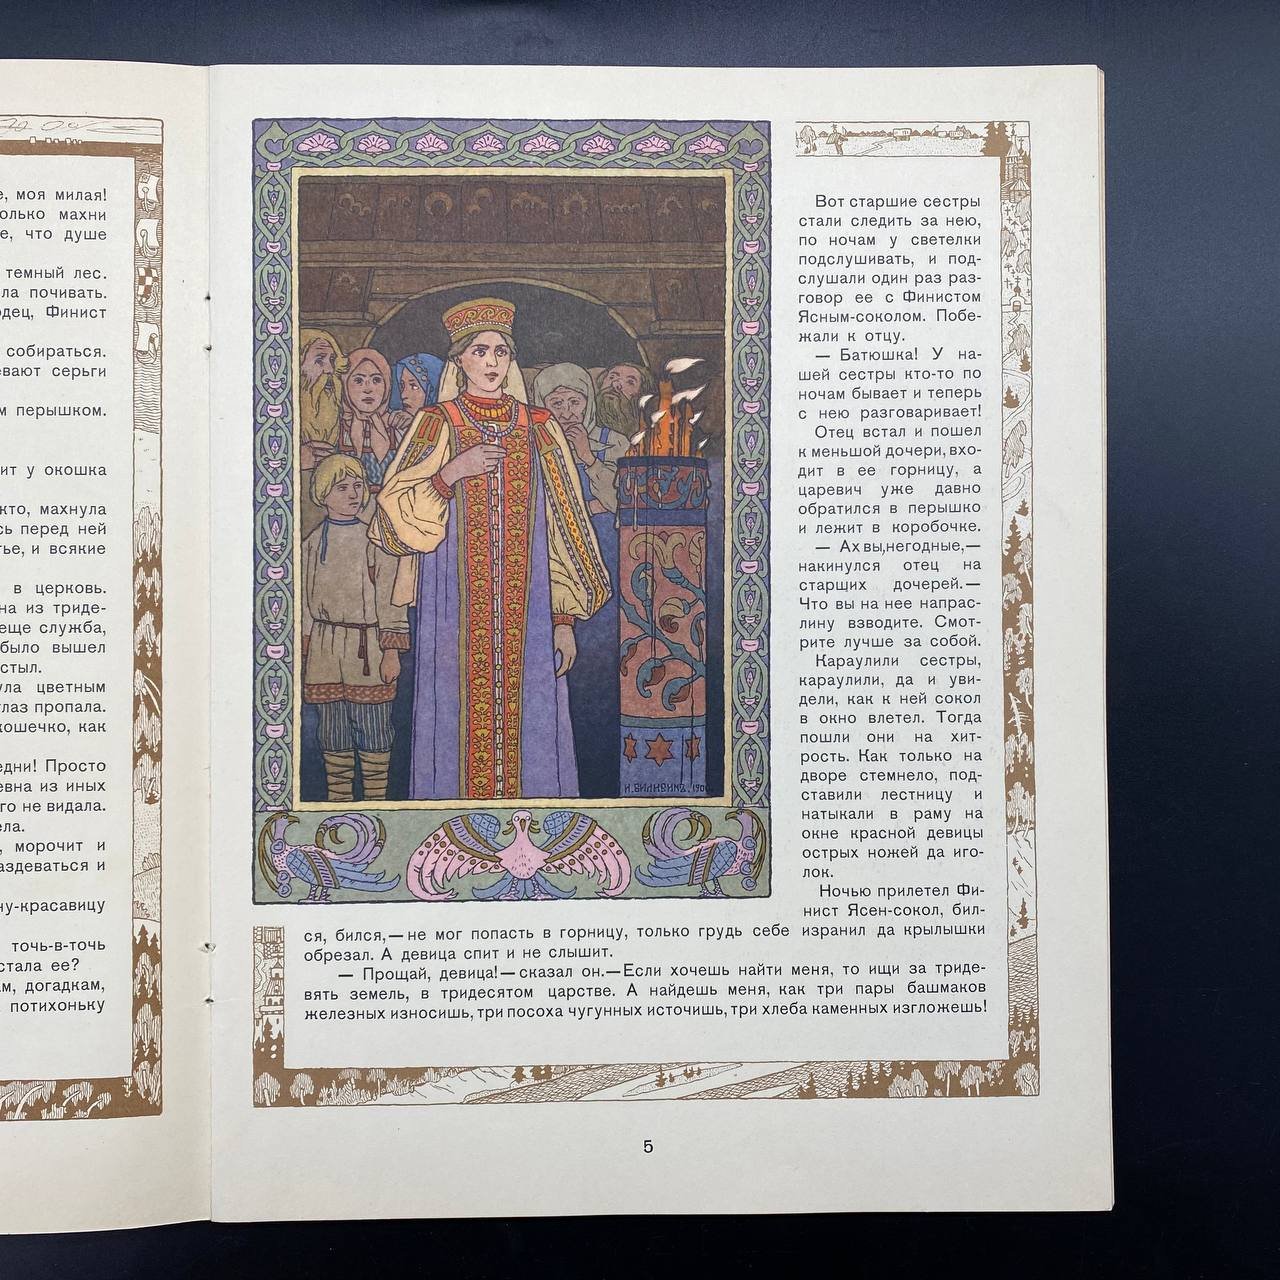 е, моя милая!
олько махни
е, что душе
темный лес.
ла почивать.
одец, Финист
собираться.
евают серьги
м перышком.
ит у окошка
кто, махнула
сь перед ней
тье, и всякие
в церковь.
на из триде-
еще служба,
было вышел
стыл.
ула цветным
глаз пропала.
кошечко, как
едни! Просто
евна из иных
го не видала.
ела.
, морочит и
аздеваться и
ну-красавицу
точь-в-точь
стала ее?
ам, догадкам,
потихоньку
И. БИЛИБИНЪ. 190
Вот старшие сестры
стали следить за нею,
по ночам у светелки
подслушивать, и под-
слушали один раз раз-
говор ее с Финистом
Ясным-соколом. Побе-
жали к отцу.
— Батюшка! У на-
шей сестры кто-то по
ночам бывает и теперь
с нею разговаривает!
Отец встал и пошел
к меньшой дочери, вхо-
дит в ее горницу, а
царевич уже давно
обратился в перышко
и лежит в коробочке.
— Ах вы,негодные,—
накинулся отец на
старших дочерей.—
Что вы на нее напрас-
лину взводите. Смот-
рите лучше за собой.
Караулили сестры,
караулили, да и уви-
дели, как к ней сокол
в окно влетел. Тогда
пошли они на хит-
рость. Как только на
дворе стемнело, под-
ставили лестницу и
натыкали в раму на
окне красной девицы
острых ножей да иго-
лок.
Ночью прилетел Фи-
нист Ясен-сокол, бил-
ся, бился,—не мог попасть в горницу, только грудь себе изранил да крылышки
обрезал. А девица спит и не слышит.
— Прощай, девица!—сказал он.—Если хочешь найти меня, то ищи за триде-
вять земель, в тридесятом царстве. А найдешь меня, как три пары башмаков
железных износишь, три посоха чугунных источишь, три хлеба каменных изгложешь!
5